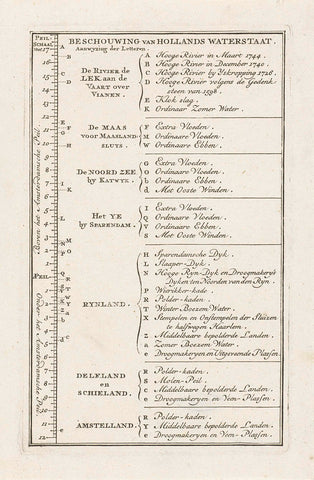 PEIL-
SCHAAL
BESCHOUWING VAN HOLLANDS WATERSTAAT.
Aanwyzing der Letteren.
DE RIVIER de
LEK, aan de
VAART over
VIANEN.
A Hooge Rivier in Maart 1744.
B Hooge Rivier in December 1740.
C Hooge Rivier by Yskropping 1726.
D Hooge Rivier volgens de Gedenk
steen van 1598.
E Klok slag.
K Ordinair Zomer Water.
DE MAAS
VOOR MAASLAND
SLUYS.
F Extra Vloeden.
M Ordinaire Vloeden.
W Ordinaire Ebben.
DE NOORD ZEE
by KATWYK.
G Extra Vloeden.
O Ordinaire Vloeden.
b Ordinaire Ebben.
d Met Ooste Winden.
HET YE
by SPARENDAM.
I Extra Vloeden.
Q Ordinaire Vloeden.
V Ordinaire Ebben.
S Met Ooste Winden.
RYNLAND.
H Sparendamsche Dyk.
L Slaaper-Dyk.
N Hooge Ryn-Dyk en Droogmakery's
Dyken ten Noorden van den Ryn.
P Wierikker-kade.
R Polder-kaden.
T Winter Boezem Water.
X Stempelen en Onstempelen der Sluizen
te halfwegen Haarlem.
Z Middelbaare bepolderde Landen.
a Zomer Boezem Water.
e Droogmakeryen en Uitgeveende Plassen.
DELFLAND
en
SCHIELAND.
R Polder-kaden.
S Molen-Peil.
c Middelbaare bepolderde Landen.
e Droogmakeryen en Veen-Plassen.
AMSTELLAND.
R Polder-kaden.
Y Middelbaare bepolderde Landen.
e Droogmakeryen en Veen-Plassen.
Boven het Amsterdamsche Peil.
PEIL
Onder het Amsterdamsche Peil.